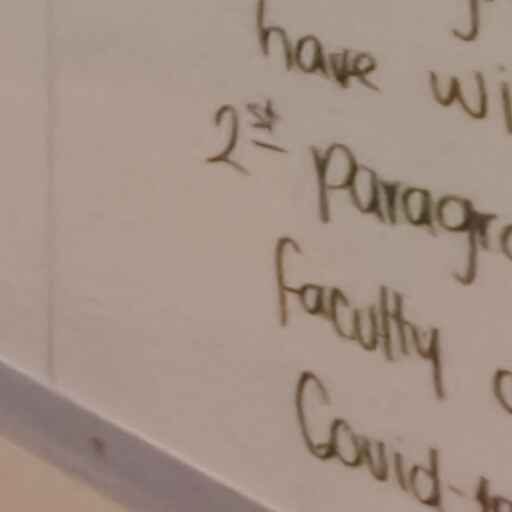 have wi
2st Paragra
Faculty
Covid-